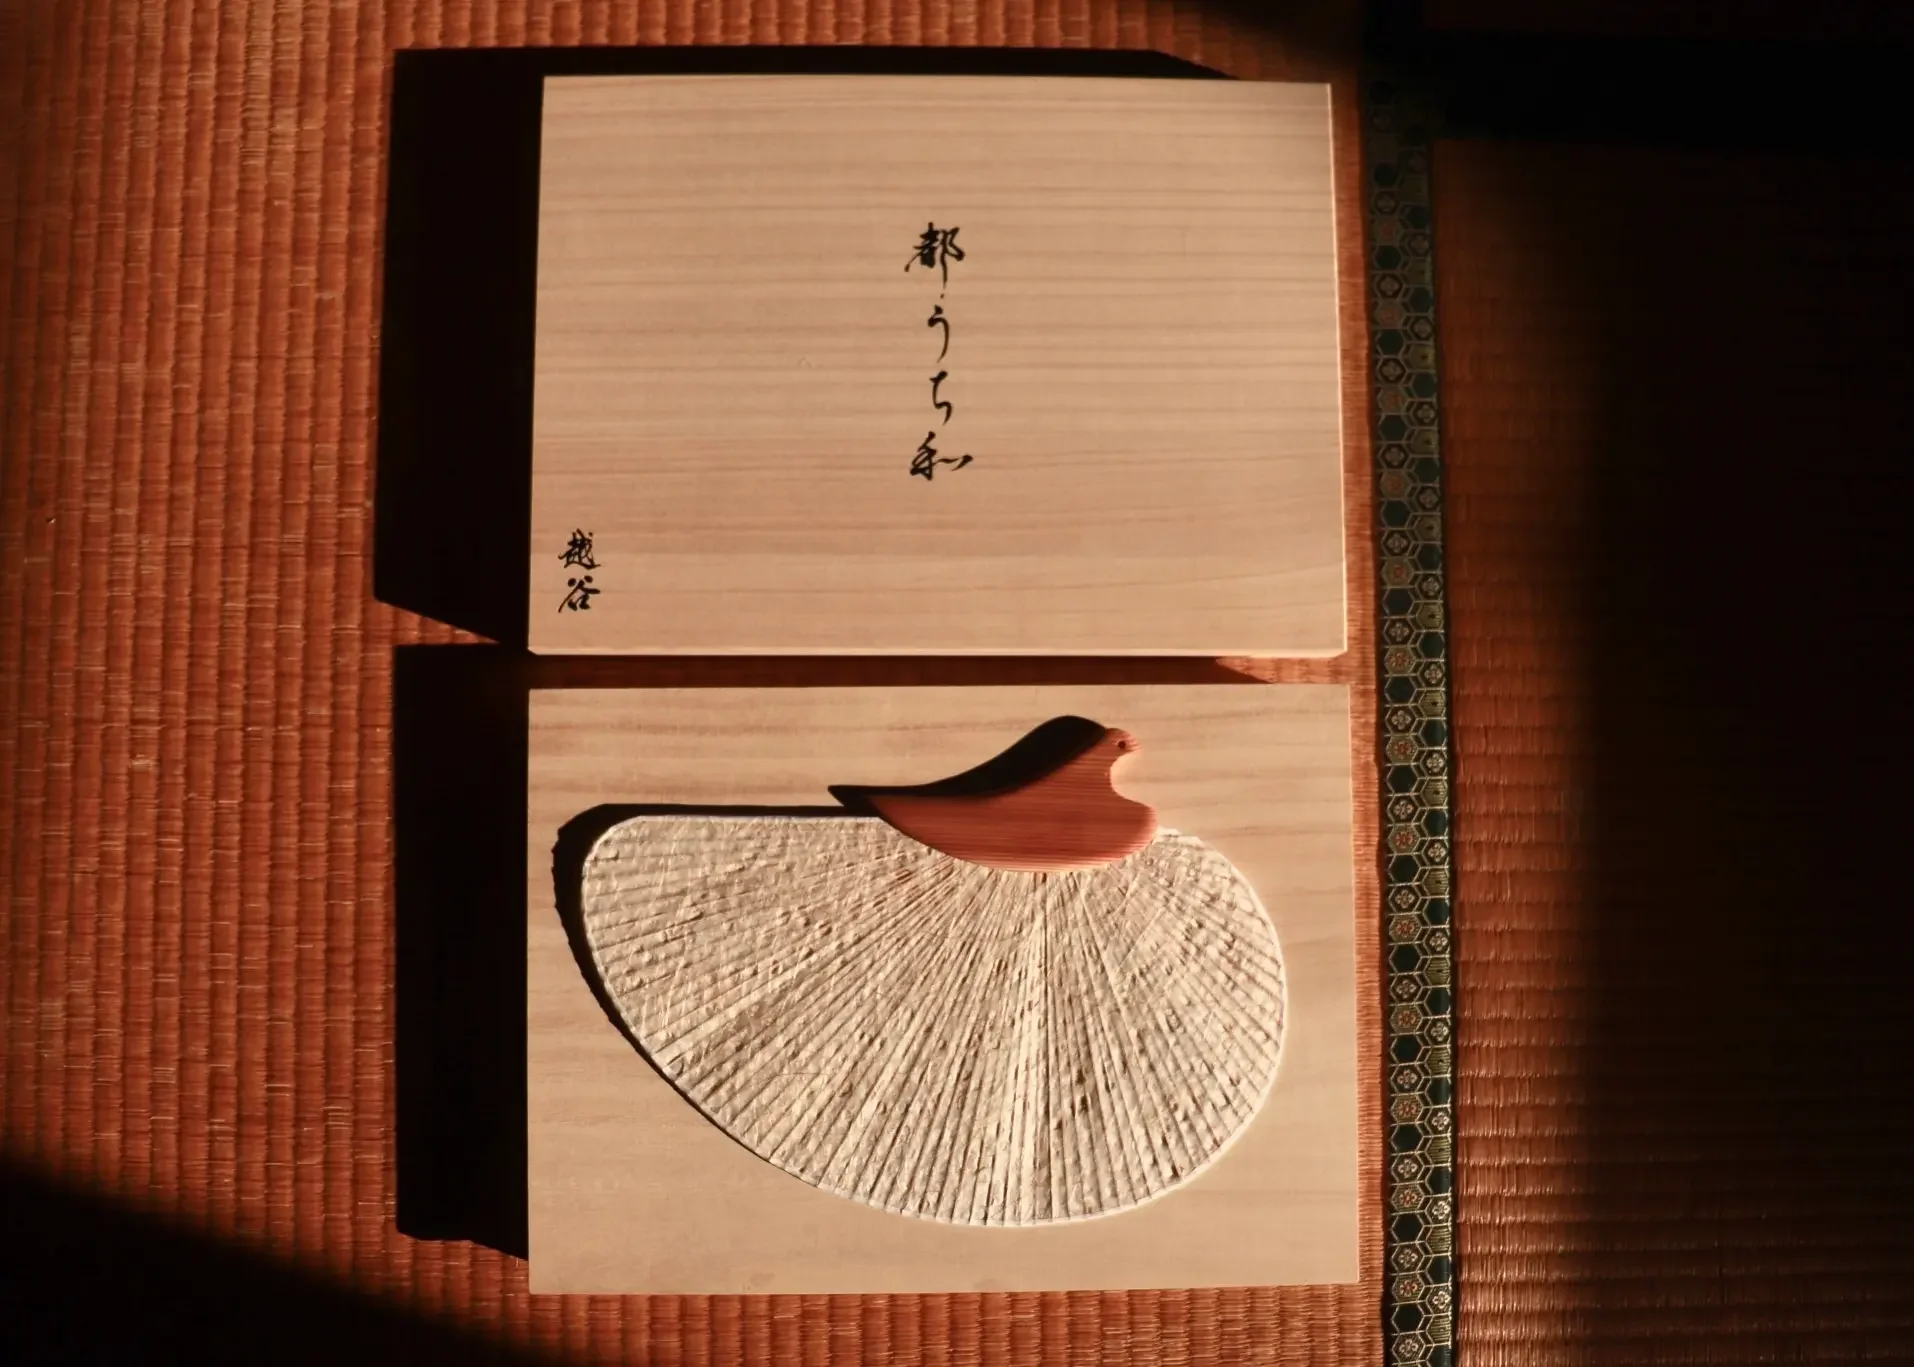 都うち和
越谷